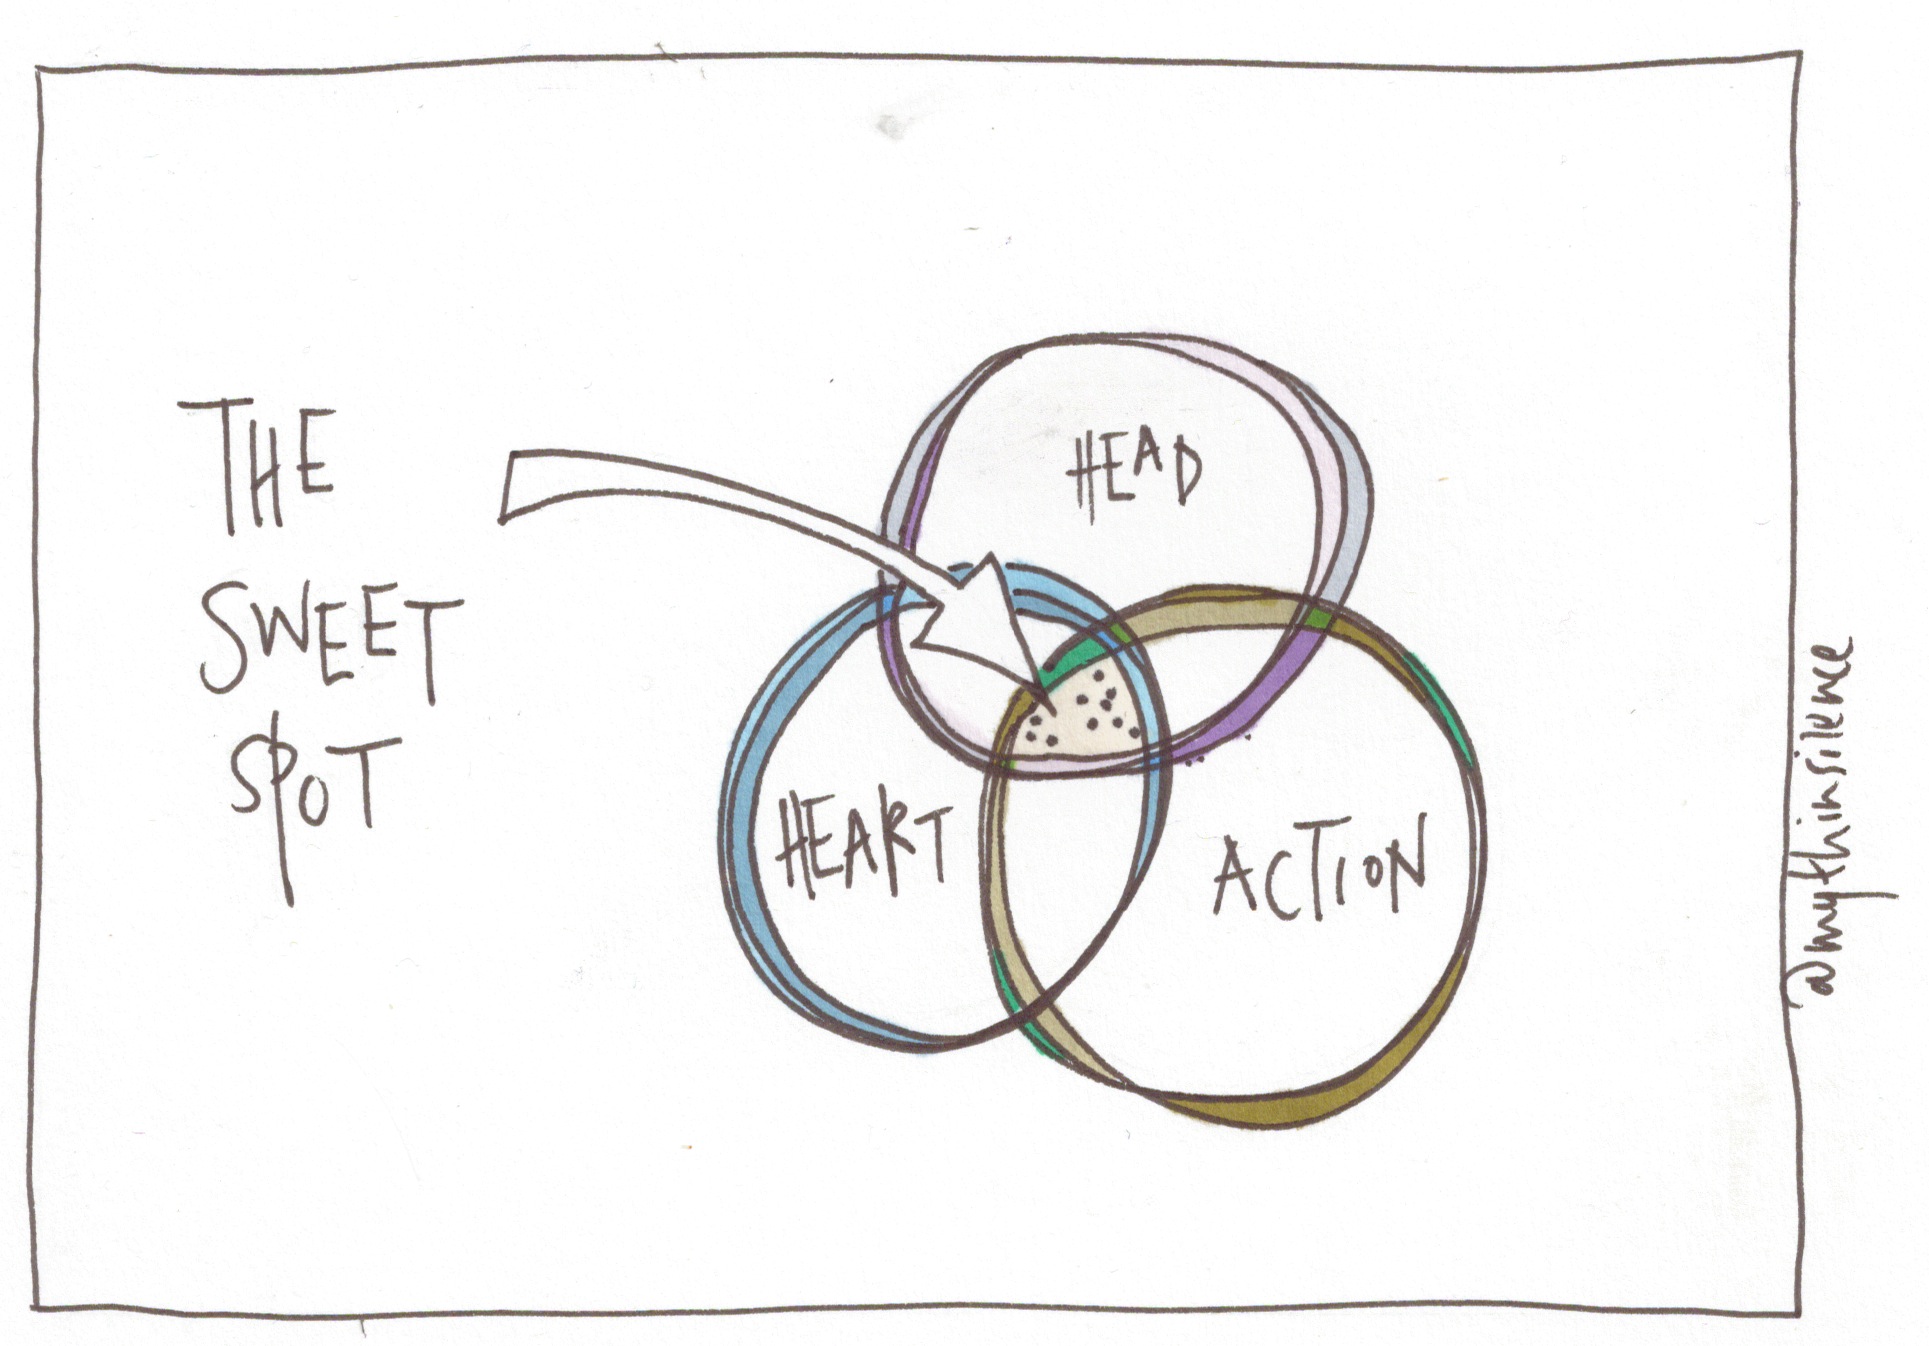 THE
SWEET
SPOT
HEAD
HEART
ACTION
@mythinsilence